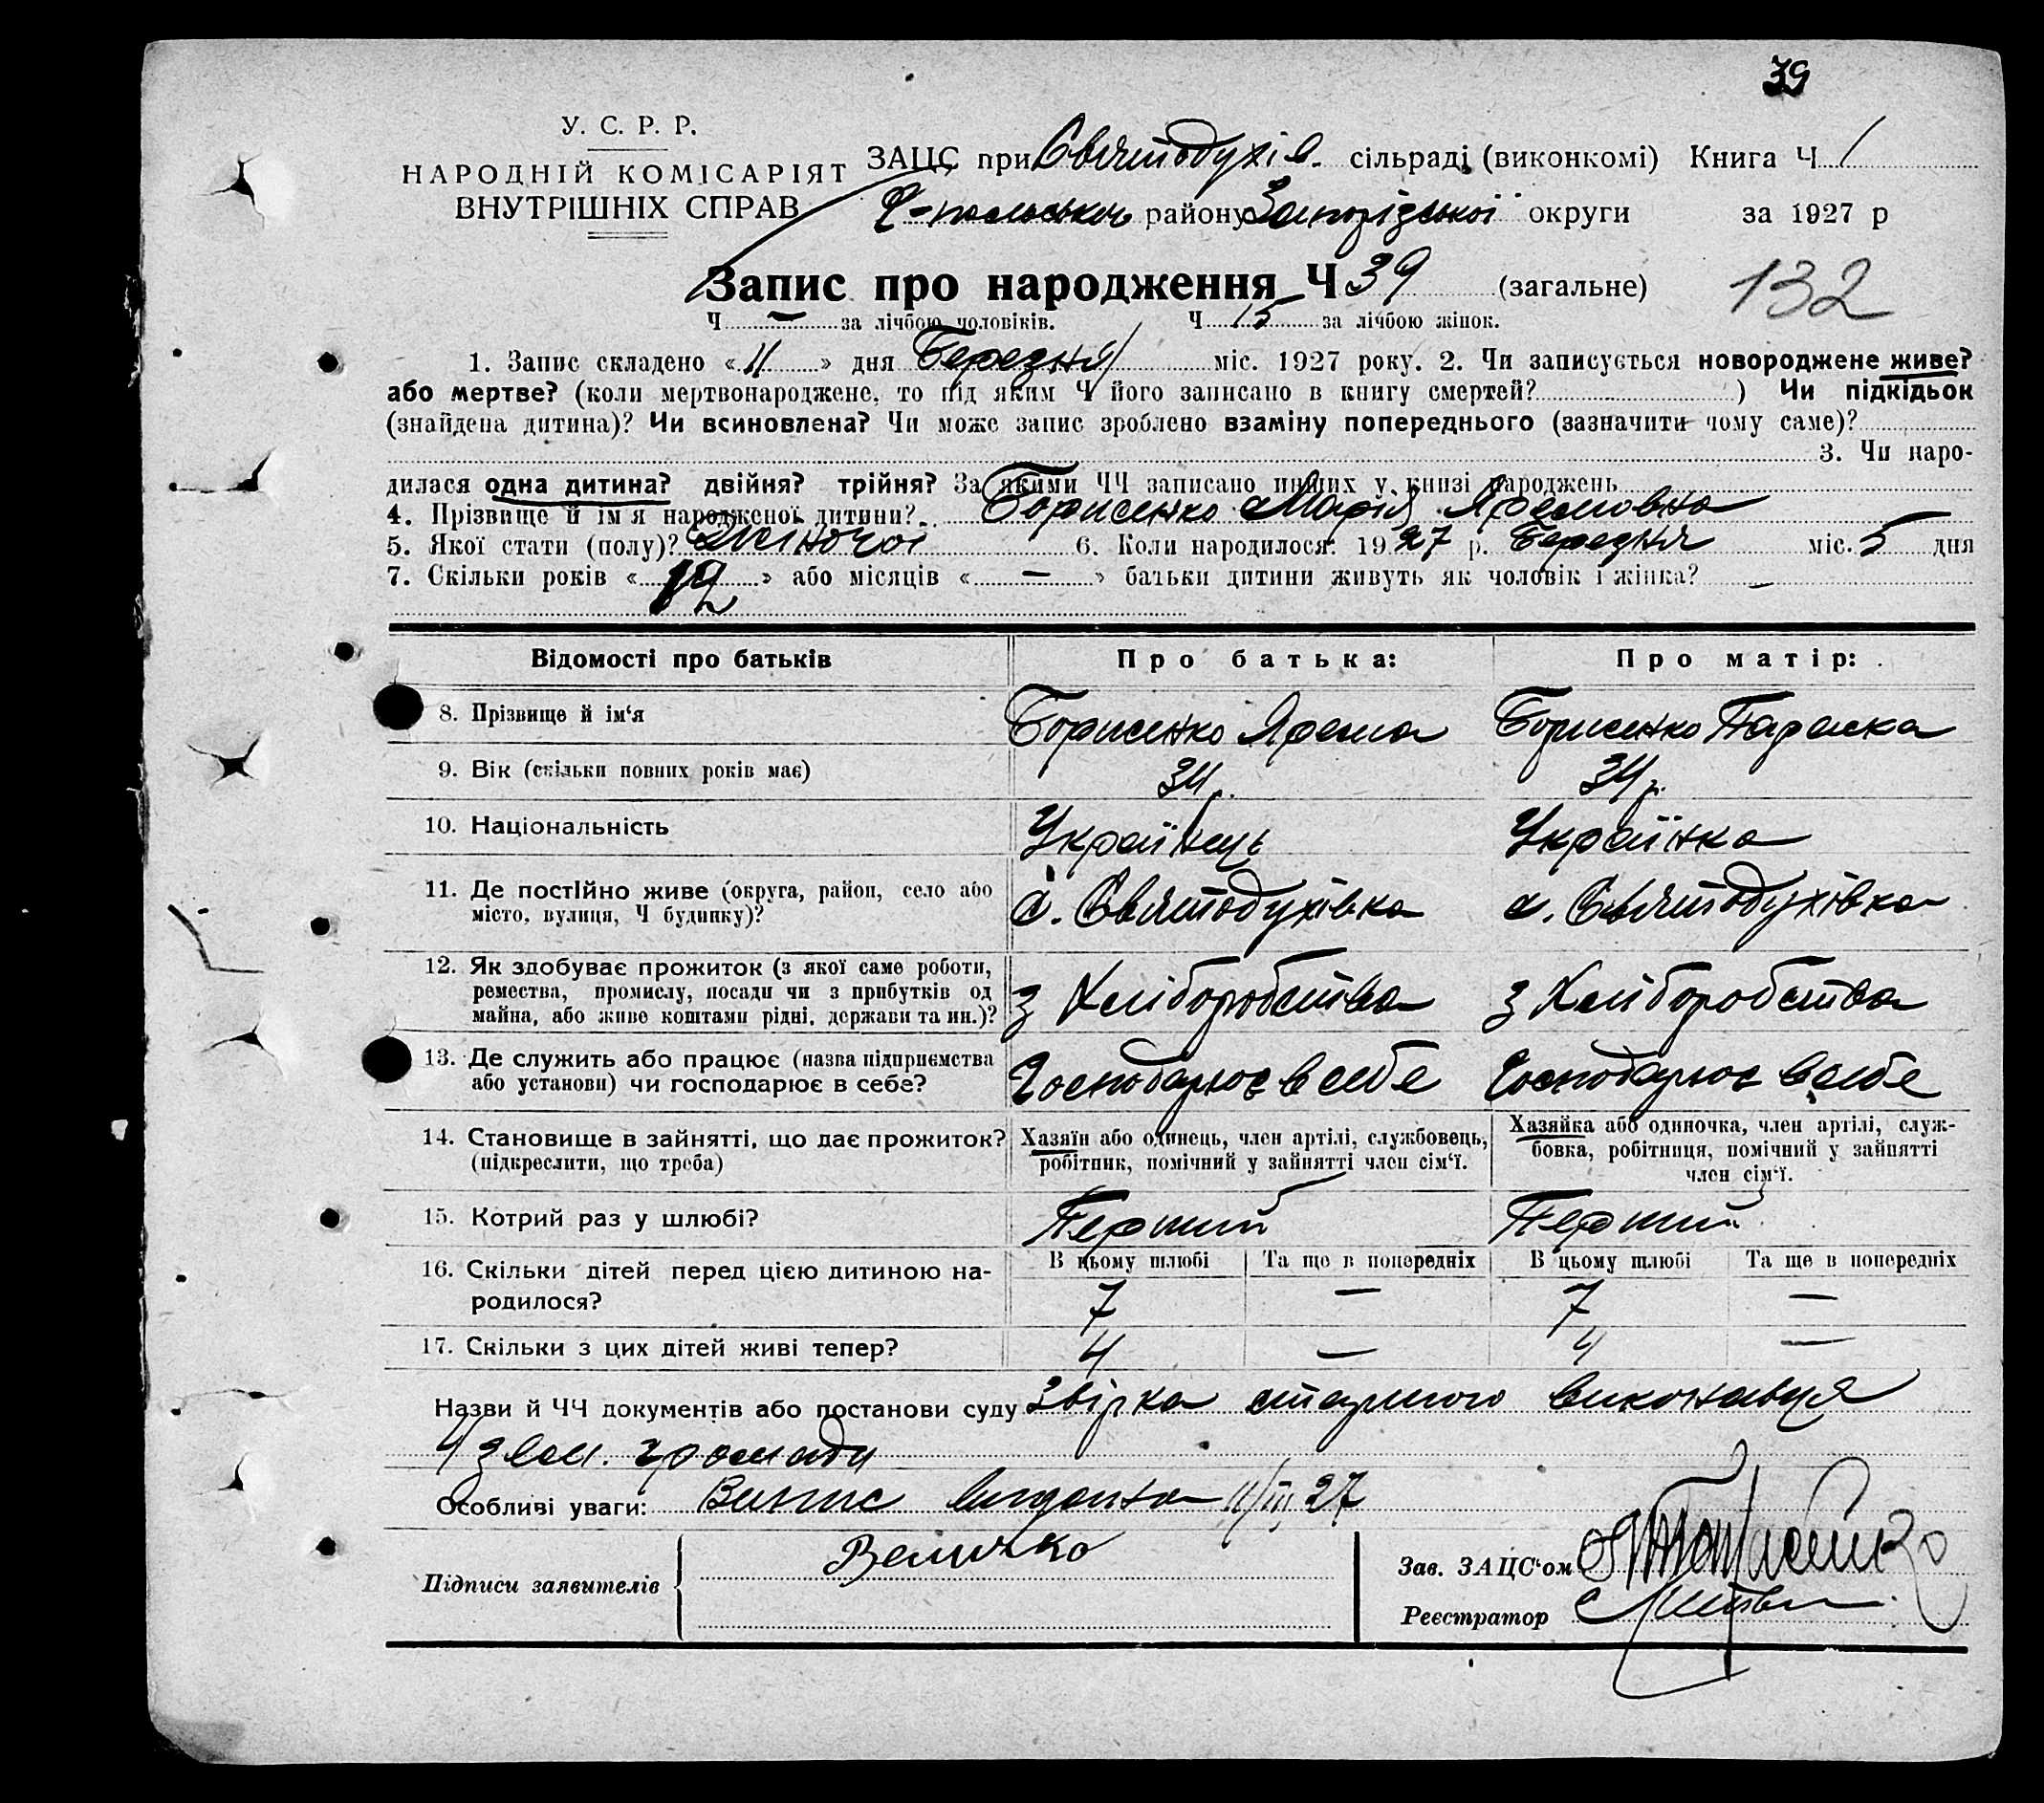 39
У. С. Р. Р.
НАРОДНІЙ КОМІСАРІЯТ
ВНУТРІШНІХ СПРАВ
ЗАЦС при Святодухів. сільраді (виконкомі) Книга Ч 1
району Запорізької округи за 1927 р
Запис про народження Ч 39 (загальне) 132
Ч — за лічбою чоловіків. Ч 15 за лічбою жінок.
1. Запис складено «11» дня Березня міс. 1927 року. 2. Чи записується новороджене живе?
або мертве? (коли мертвонароджене, то під яким Ч його записано в книгу смертей? ) Чи підкідьок
(знайдена дитина)? Чи всиновлена? Чи може запис зроблено взаміну попереднього (зазначити чому саме)?
3. Чи наро-
дилася одна дитина? двійня? трійня? За якими ЧЧ записано инших у книзі народжень
4. Прізвище й ім'я народженої дитини? Борисенко Марія Яремовна
5. Якої стати (полу)? Жіночої 6. Коли народилося: 1927 р. Березня міс. 5 дня
7. Скільки років «12» або місяців « — » батьки дитини живуть як чоловік і жінка? —
Відомості про батьків Про батька: Про матір:
8. Прізвище й ім'я Борисенко Ярема Борисенко Параска
9. Вік (скільки повних років має) 34 р. 34 р.
10. Національність Українець Українка
11. Де постійно живе (округа, район, село або
місто, вулиця, Ч будинку)? с. Святодухівка с. Святодухівка
12. Як здобуває прожиток (з якої саме роботи,
ремества, промислу, посади чи з прибутків од
майна, або живе коштами рідні, держави та ин.)? з Хліборобства з Хліборобства
13. Де служить або працює (назва підприємства
або установи) чи господарює в себе? Господарює в себе Господарює в себе
14. Становище в зайнятті, що дає прожиток?
(підкреслити, що треба)
Хазяїн або одинець, член артілі, службовець,
робітник, помічний у зайнятті член сім'ї.
Хазяйка або одиночка, член артілі, служ-
бовка, робітниця, помічний у зайнятті
член сім'ї.
15. Котрий раз у шлюбі? Перший Перший
В цьому шлюбі Та ще в попередніх В цьому шлюбі Та ще в попередніх
16. Скільки дітей перед цією дитиною на-
родилося? 7 — 7 —
17. Скільки з цих дітей живі тепер? 4 — 4 —
Назви й ЧЧ документів або постанови суду Звірка старшого виконавця
4 зем. громади
Особливі уваги: Випис видана 11/III 27
Підписи заявителів Величко
Зав. ЗАЦС'ом
Реєстратор